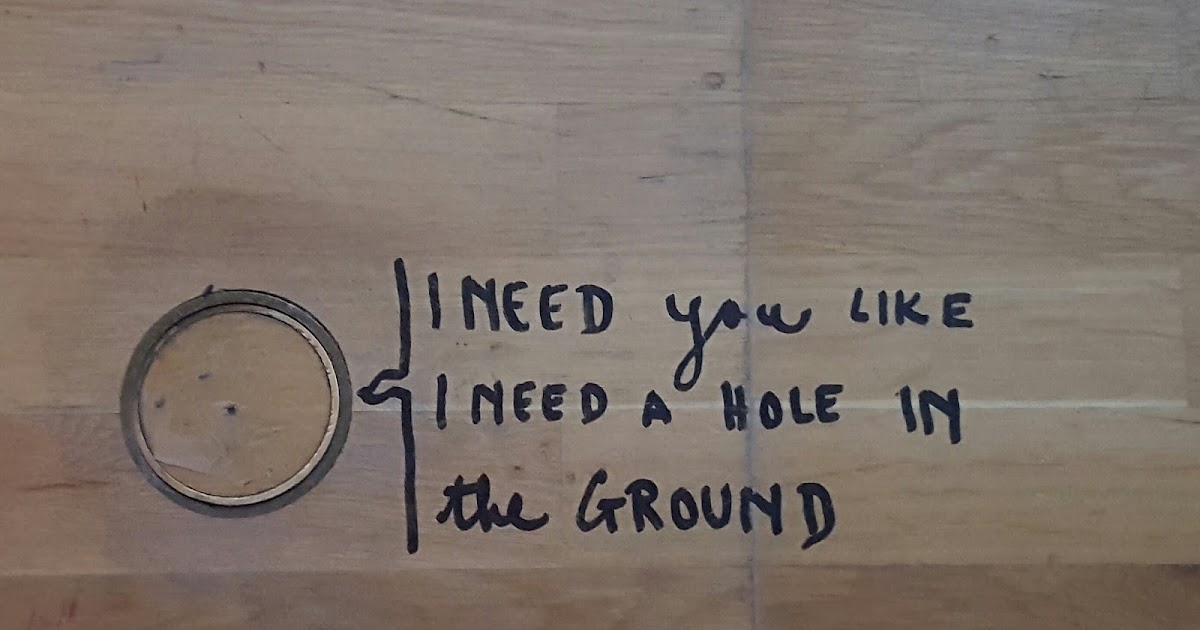 I NEED you LIKE
I NEED A HOLE IN
the GROUND